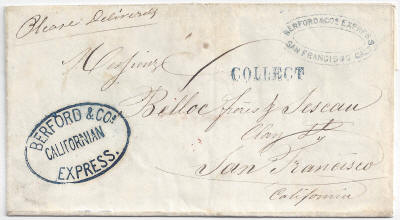 Please Deliver
BERFORD & CO'S EXPRESS
SAN FRANCISCO CAL.
Messieurs
COLLECT
Billoc frères & Seseau
Clay St
San Francisco
California
BERFORD & CO'S
CALIFORNIAN
EXPRESS.